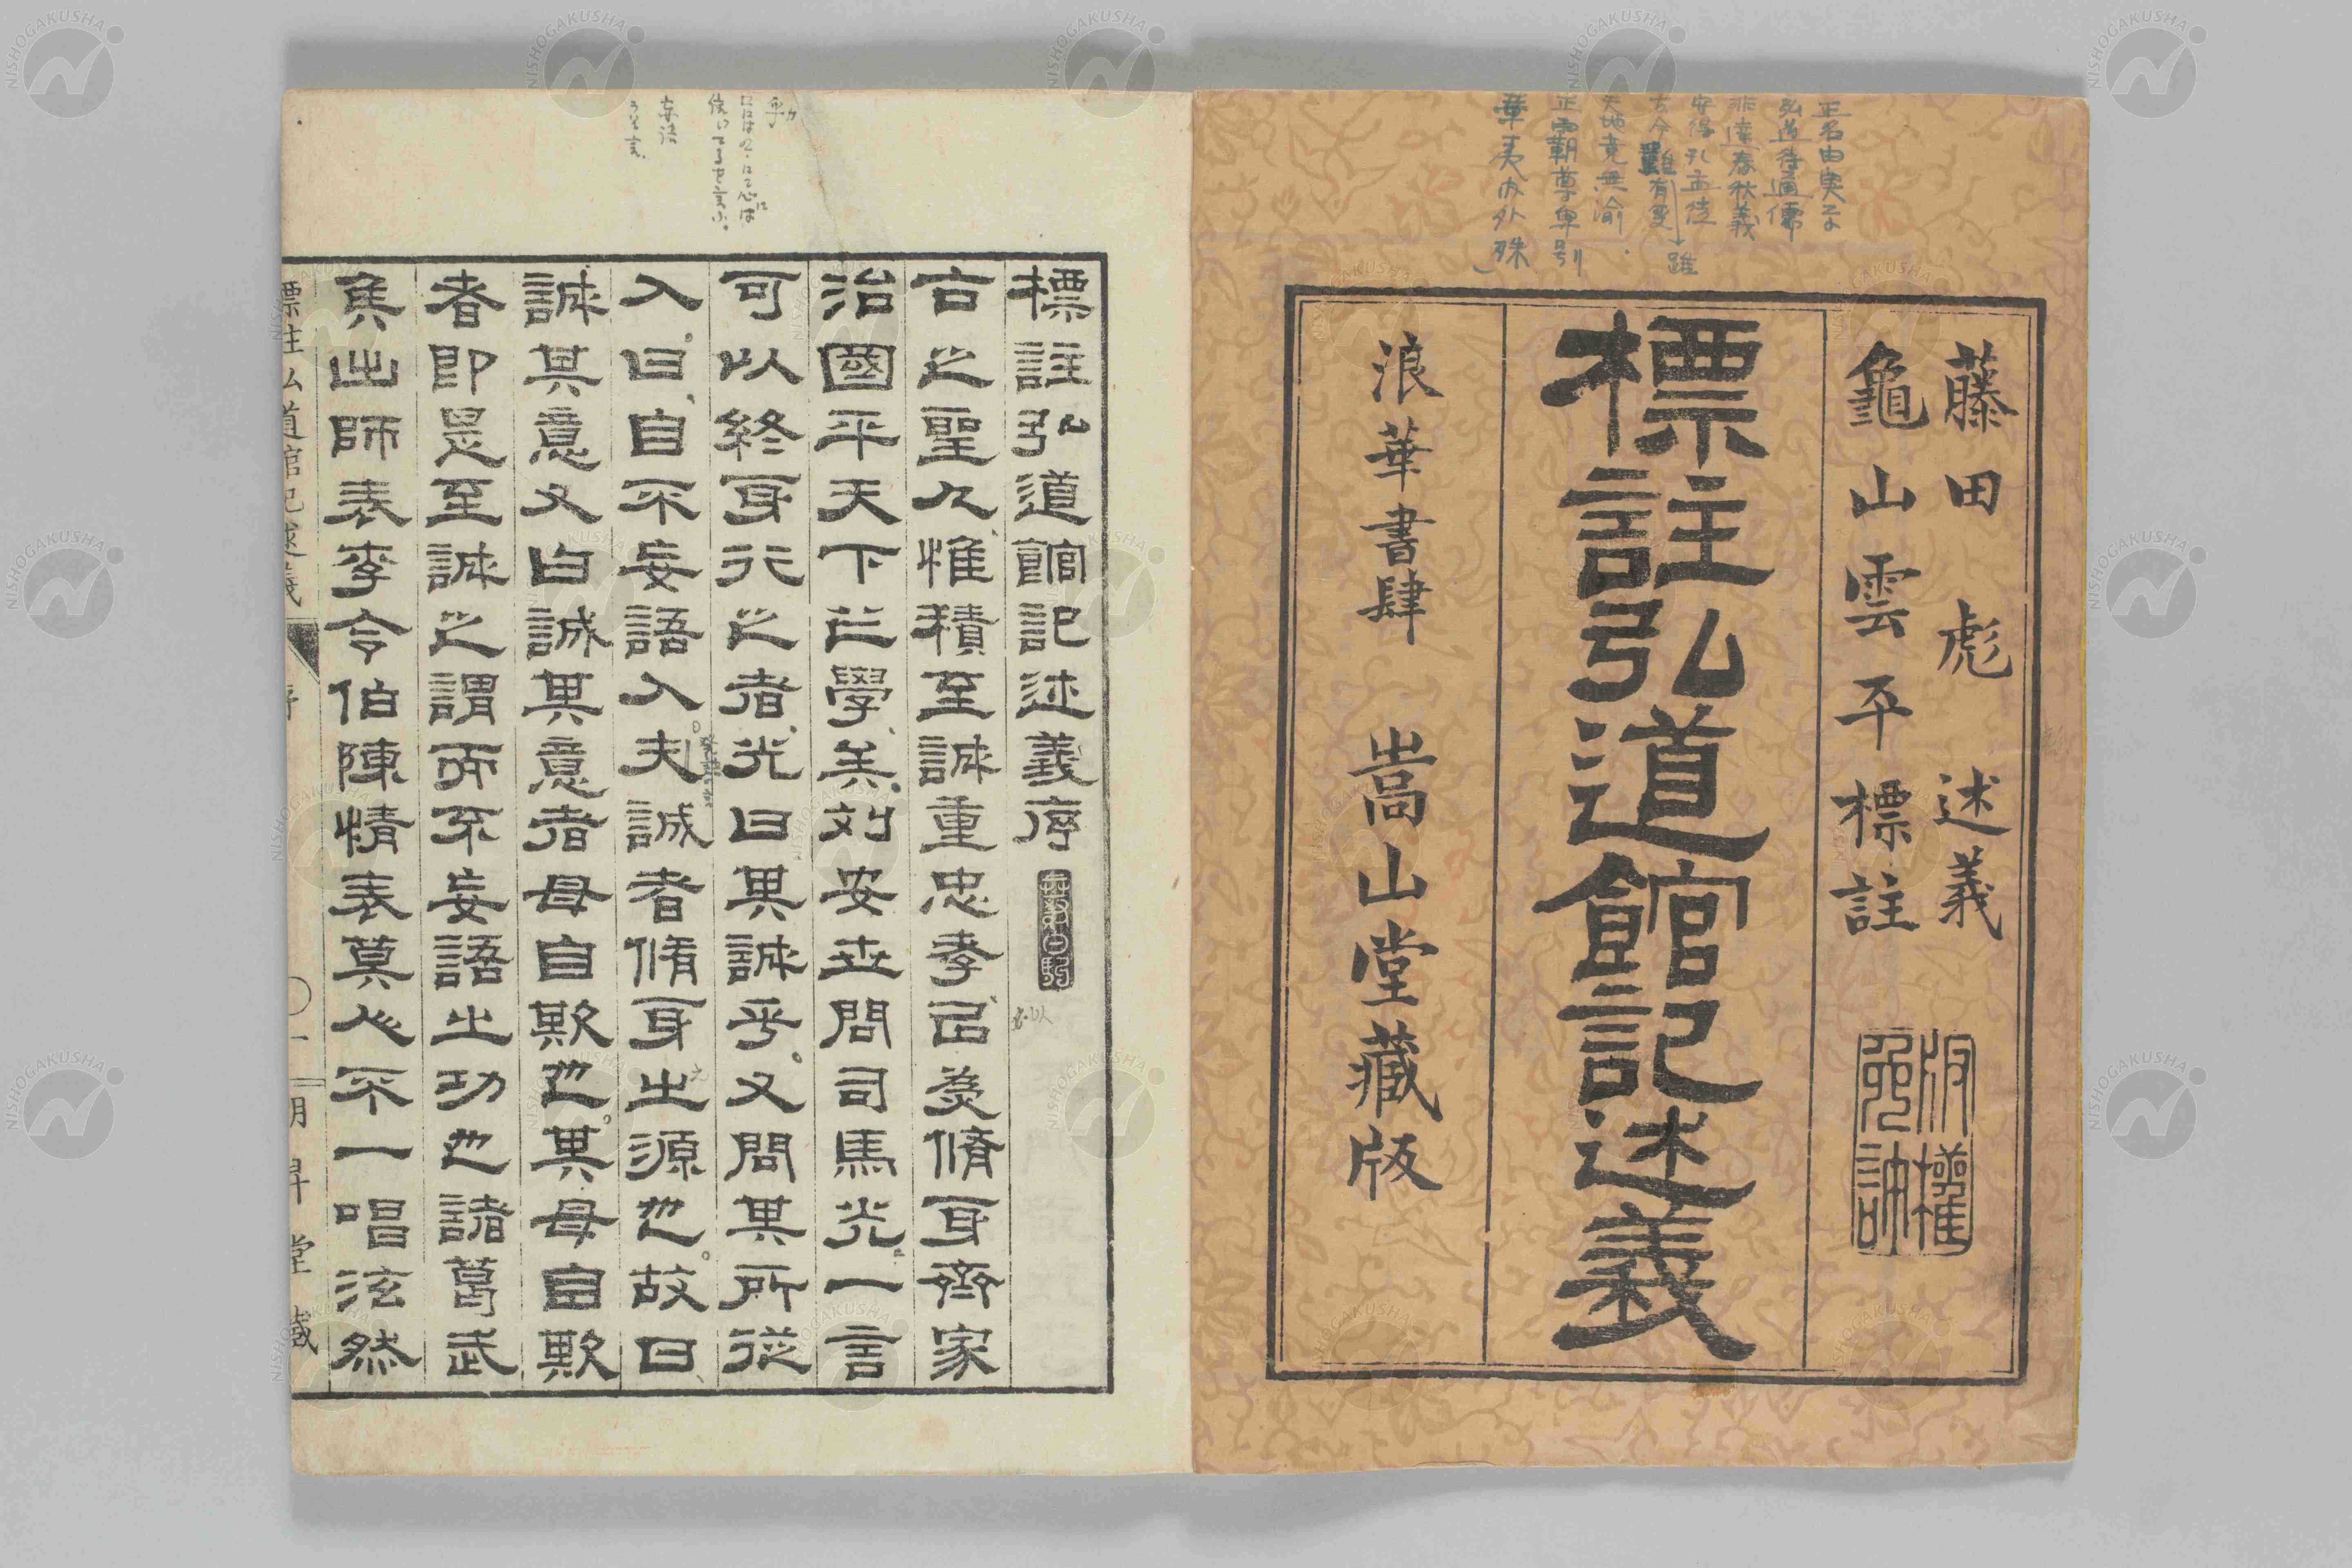 藤田彪述義
龜山雲平標註
版權免許
標註弘道館記述義
浪華書肆 嵩山堂藏版
正名由実
弘道待通儒
非達春秋義
安得孔孟徒
古今雖有変
天地竟無渝
正霸尊卑別
華夷内外殊
標註弘道館記述義序
古之聖人惟積至誠重忠孝㠯爲脩身齊家
治國平天下之學矣劉安世問司馬光一言
可以終身行之者光曰其誠乎又問其所從
入曰自不妄語入夫誠者脩身之源也故曰
誠其意又曰誠其意者毋自欺也其毋自欺
者即是至誠之謂而不妄語之功也諸葛武
侯出師表李令伯陳情表莫人不一唱泫然
妄語
標註弘道館記述義 序 ○一 明昇堂藏
NISHOGAKUSHA